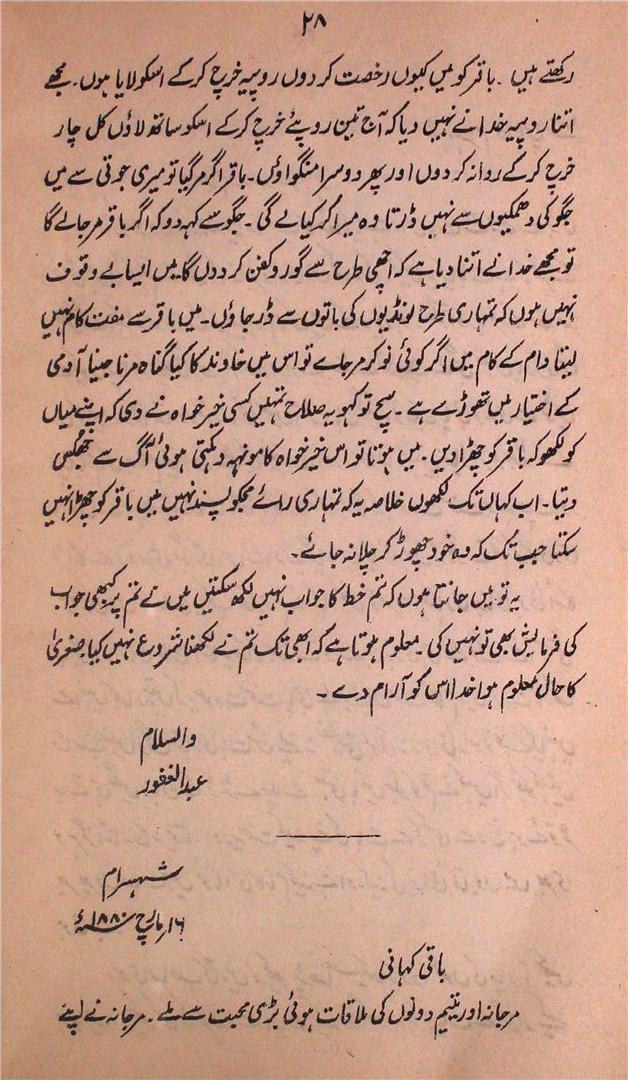 ۲۸
رکھتے ہیں ۔ باقر کو میں کیوں رخصت کر دوں روپیہ خرچ کر کے اسکو لایا ہوں ۔ مجھے
اتنا روپیہ خدا نے نہیں دیا کہ آج تین روپئے خرچ کر کے اسکو ساتھ لاؤں کل چار
خرچ کر کے روانہ کر دوں اور پھر دوسرا منگواؤں ۔ باقر اگر مر گیا تو میری جوتی سے میں
جگو کی دھمکیوں سے نہیں ڈرتا وہ میرا کر کیا لے گی ۔ جگو سے کہہ دو کہ اگر باقر مر جائے گا
تو مجھے خدا نے اتنا دیا ہے کہ اچھی طرح سے گور و کفن کر دوں گا میں ایسا بے وقوف
نہیں ہوں کہ تمہاری طرح لونڈیوں کی باتوں سے ڈر جاؤں ۔ میں باقر سے مفت کام نہیں
لیتا دام کے کام میں اگر کوئی نوکر مر جاے تو اس میں خاوند کا کیا گناہ مرنا جینا آدمی
کے اختیار میں تھوڑے ہے ۔ سچ تو کہو یہ صلاح تمہیں کسی خیر خواہ نے دی کہ اپنے میاں
کو لکھو کہ باقر کو چھڑا دیں ۔ میں ہوتا تو اس خیر خواہ کا مونہہ دہکتی ہوئی آگ سے جھلس
دیتا ۔ اب کہاں تک لکھوں خلاصہ یہ کہ تمہاری رائے مجکو پسند نہیں میں باقر کو چھڑا نہیں
سکتا جب تک کہ وہ خود چھوڑ کر چلا نہ جائے ۔
یہ تو میں جانتا ہوں کہ تم خط کا جواب نہیں لکھ سکتیں میں نے تم پر کبھی جواب
کی فرمایش بھی تو نہیں کی ۔ معلوم ہوتا ہے کہ ابھی تک تم نے لکھنا شروع نہیں کیا ۔ صغریٰ
کا حال معلوم ہوا خدا اس کو آرام دے ۔
والسلام
عبدالغفور
شہسرام
۱۶؍ مارچ ۱۸۸۰ء
باقی کہانی
مرجانہ اور یتیم دونوں کی ملاقات ہوئی بڑی محبت سے ملے ۔ مرجانہ نے اپنے